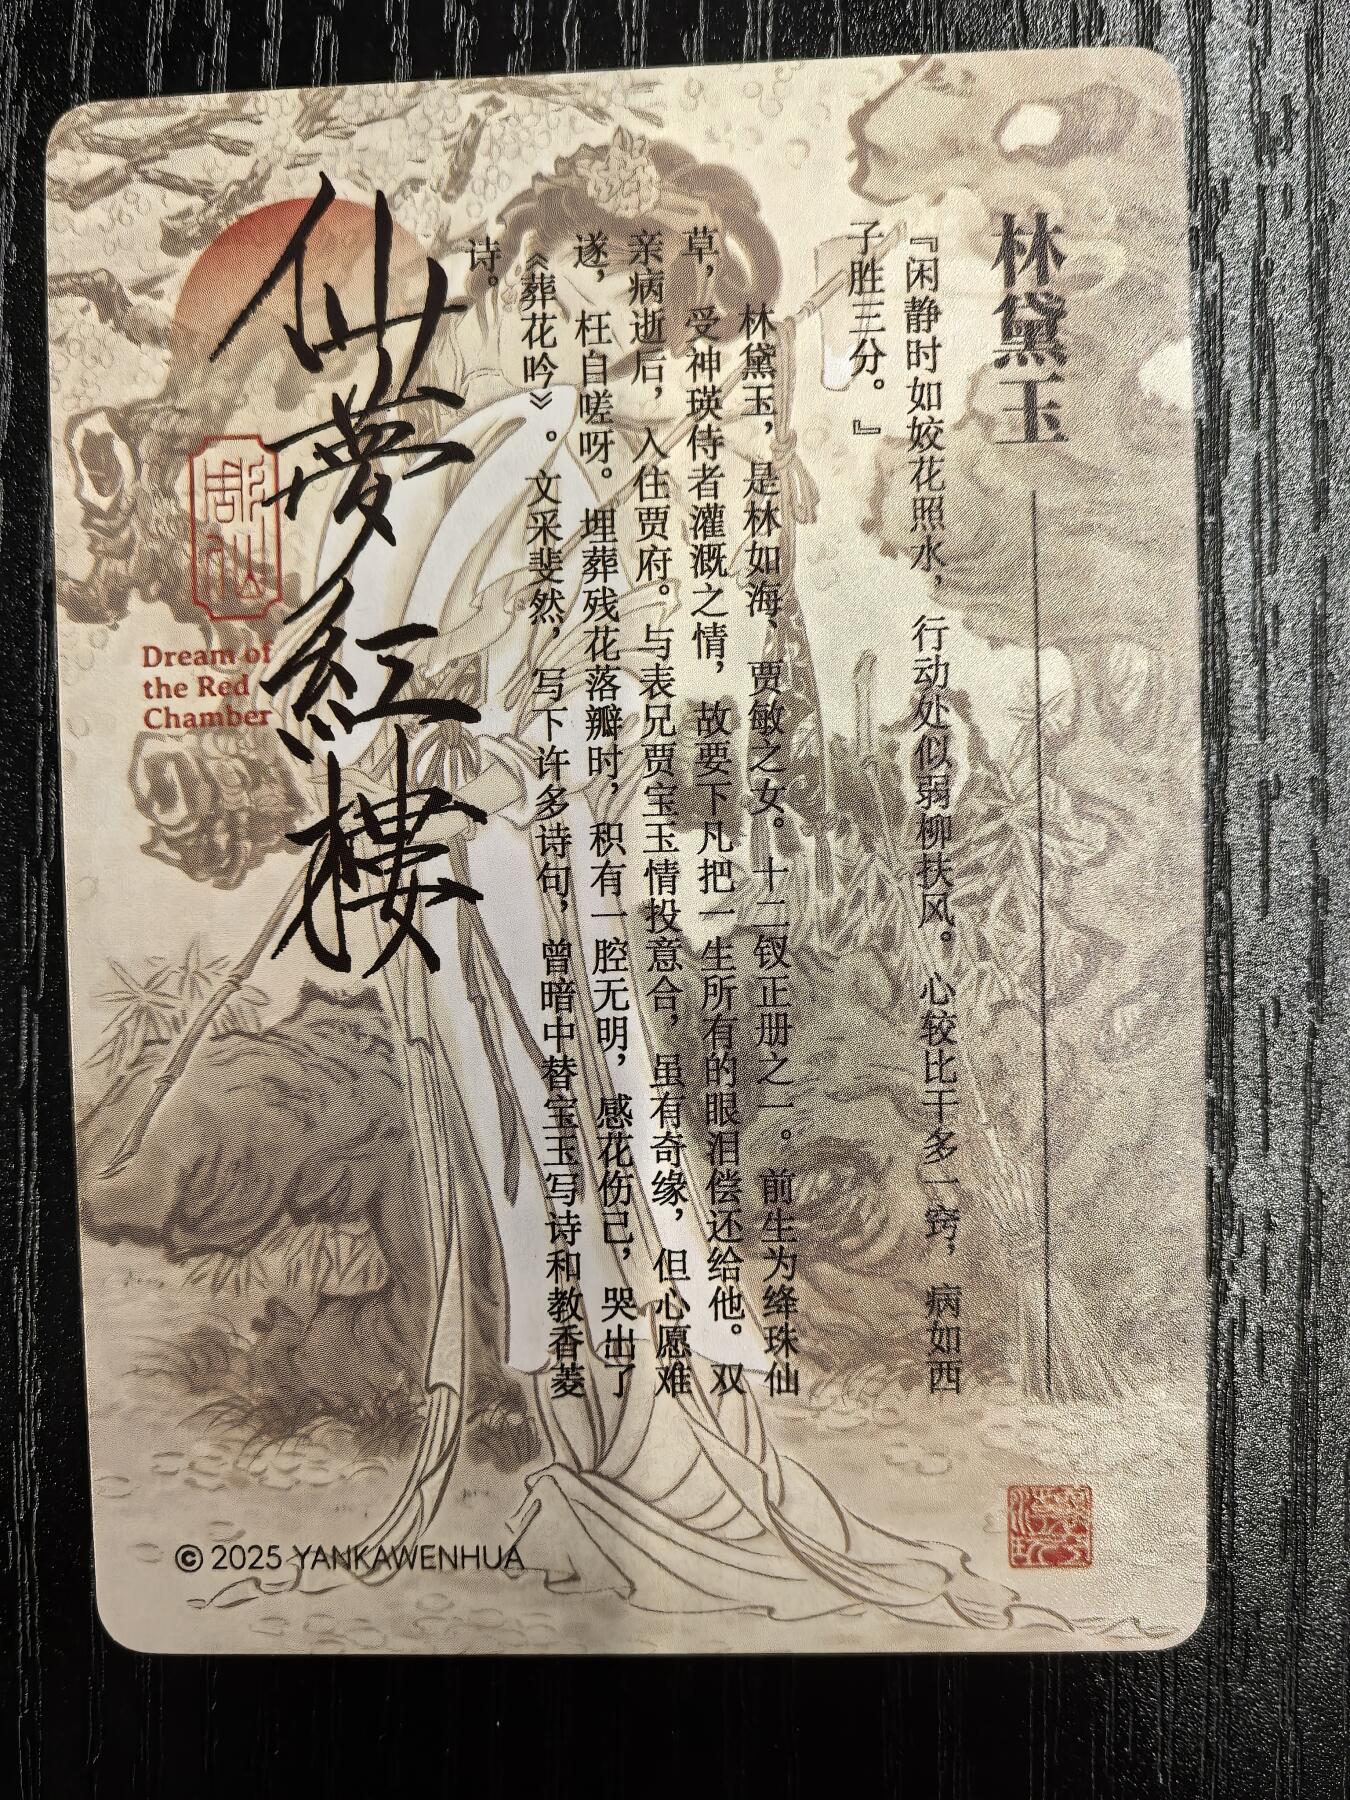 林黛玉
『闲静时如姣花照水，行动处似弱柳扶风。心较比干多一窍，病如西
子胜三分。』
林黛玉，是林如海、贾敏之女。十二钗正册之一。前生为绛珠仙
草，受神瑛侍者灌溉之情，故要下凡把一生所有的眼泪偿还给他。双
亲病逝后，入住贾府。与表兄贾宝玉情投意合，虽有奇缘，但心愿难
遂，枉自嗟呀。埋葬残花落瓣时，积有一腔无明，感花伤己，哭出了
《葬花吟》。文采斐然，写下许多诗句，曾暗中替宝玉写诗和教香菱
诗。
仙夢紅樓
Dream of
the Red
Chamber
© 2025 YANKAWENHUA